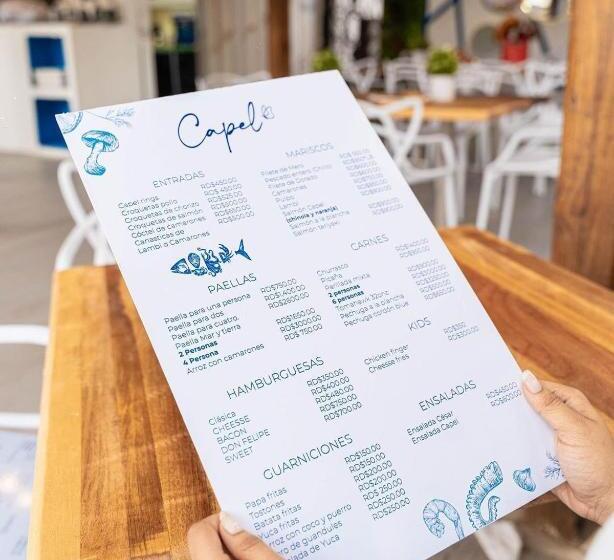 Capel
ENTRADAS
Capel rings
Croquetas pollo
Croquetas de chorizo
Croquetas de salmón
Cóctel de camarones
Canasticas de
Lambí o Camarones
RD$450.00
RD$ 450.00
RD$525.00
RD$500.00
RD$610.00
RD$500.00
PAELLAS
Paella para una persona
Paella para dos
Paella para cuatro.
Paella Mar y tierra
2 Personas
4 Persona
Arroz con camarones
RD$750.00
RD$1,400.00
RD$2600.00
RD$1650.00
RD$3000.00
RD$ 750.00
HAMBURGUESAS
Clásica
CHEESE
BACON
DON FELIPE
SWEET
RD$350.00
RD$400.00
RD$480.00
RD$750.00
RD$700.00
GUARNICIONES
Papa fritas
Tostones
Batata fritas
Yuca fritas
Arroz con coco y puerro
de guandules
de Yuca
RD$150.00
RD$150.00
RD$200.00
RD$200.00
RD$ 250.00
RD$250.00
RD$250.00
MARISCOS
Filete de Mero
Pescado entero (Chillo)
Filete de Dorado
Camarones
Pulpo
Lambí
Salmón Capel
(chinola y naranja)
Salmón a la plancha
Salmón teriyaki
CARNES
Churrasco
Picaña
Parillada mixta
2 personas
6 personas
Tomahawk 32onz
Pechuga a la plancha
Pechuga cordon blue
KIDS
Chicken finger
Cheesse fries
RD$350
RD$300.00
ENSALADAS
Ensalada César
Ensalada Capel
RD$450.00
RD$600.00